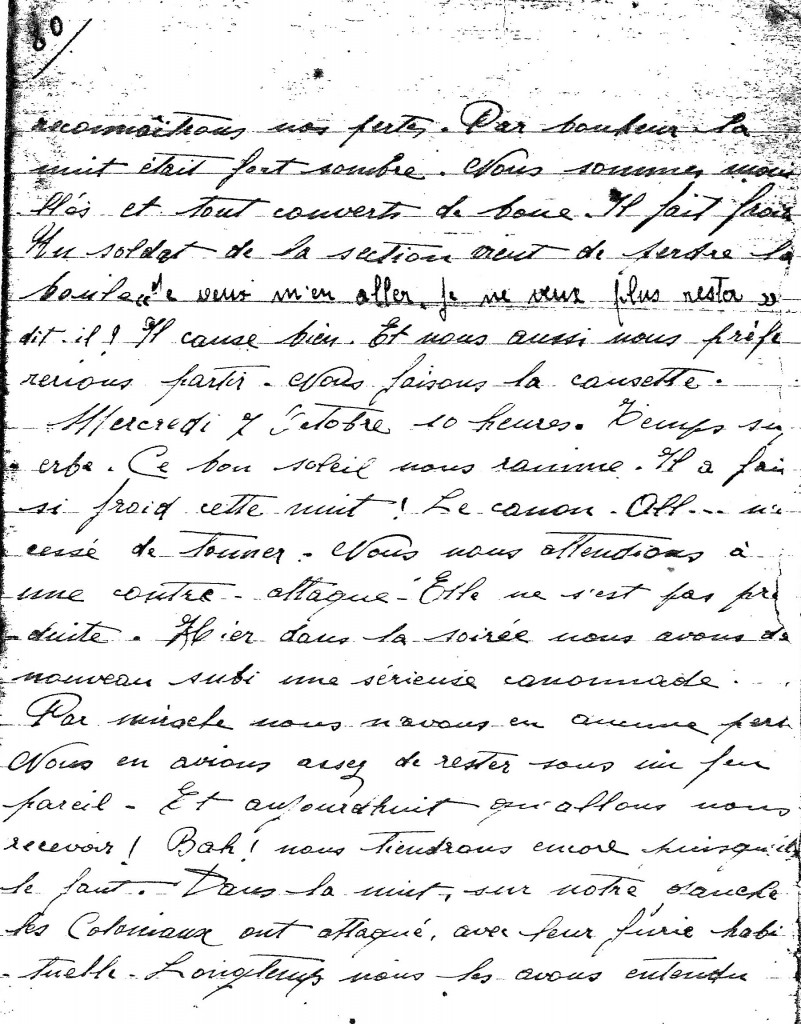 80/
reconnaîtrons nos pertes. Par bonheur la
nuit était fort sombre. Nous sommes moui
llés et tout couverts de boue. Il fait frais
Un soldat de la section vient de perdre la
boule "Je veux m'en aller, je ne veux plus rester"
dit-il! Il cause bien. Et nous aussi nous préfé
rerions partir. Nous faisons la causette.
Mercredi 7 Octobre 10 heures. Temps sup
erbe. Ce bon soleil nous ranime. Il a fait
si froid cette nuit! Le canon All... n'a
cessé de tonner. Nous nous attendions à
une contre-attaque. Elle ne s'est pas pro
duite. Hier dans la soirée nous avons de
nouveau subi une sérieuse canonnade.
Par miracle nous n'avons eu aucune perte
Nous en avions assez de rester sous un feu
pareil. Et aujourd'huit qu'allons nous
recevoir! Bah! nous tiendrons encore puisqu'il
le faut. Dans la nuit, sur notre gauche
les Coloniaux ont attaqué, avec leur furie habi
tuelle. Longtemps nous les avons entendu